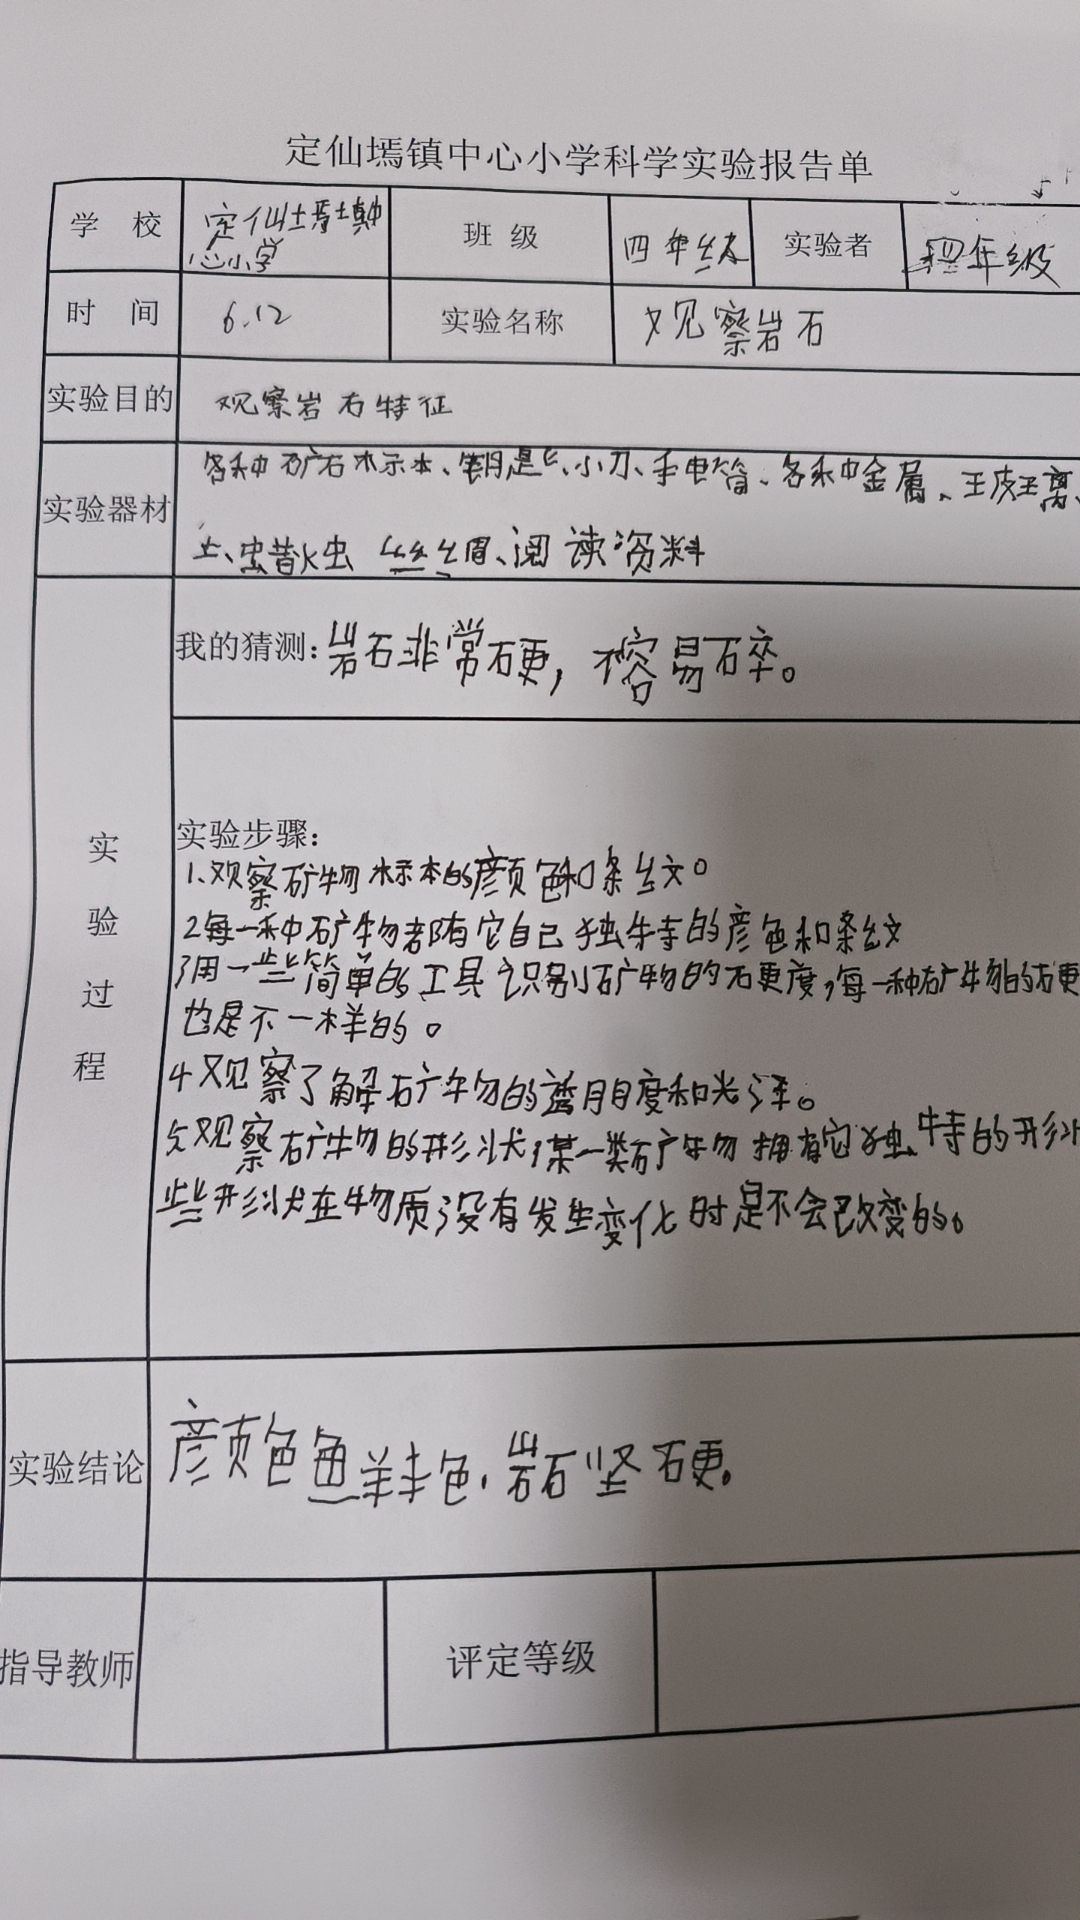 定仙墕镇中心小学科学实验报告单
学 校 定仙墕镇中心小学 班 级 四年级 实验者 四年级
时 间 6.12 实验名称 观察岩石
实验目的 观察岩石特征
实验器材 各种矿石标本、钥匙、小刀、手电筒、各种金属、玻璃、
土、蜡烛 丝绢、阅读资料
我的猜测: 岩石非常硬,不容易碎。
实验过程
实验步骤:
1.观察矿物标本的颜色和条纹。
2每一种矿物都有它自己独特的颜色和条纹
3用一些简单的工具识别矿物的硬度,每一种矿物的硬
也是不一样的。
4观察了解矿物的透明度和光泽。
5观察矿物的形状,某一类矿物拥有它独特的形状
些形状在物质没有发生变化时是不会改变的。
实验结论 颜色鱼羊丰色.岩石坚硬。
指导教师 评定等级